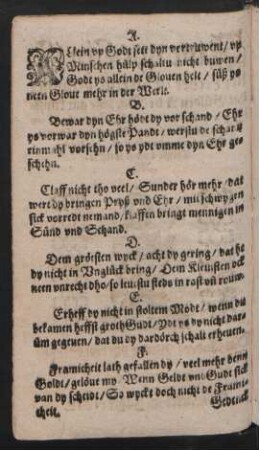 A.
Allein vp Godt sett dyn vertruwent / vp
Minschen hülp schaltu nicht buwen /
Godt ys allein de Glouen helt / süß ys
neen Gloue mehr in der Werlt.
B.
Bewar dyn Ehr hödt dy vor schand / Ehr
ys vorwar dyn högste Pandt / werstu de
einmahl vorsehn / so ys ydt vmme dyn Ehr ge-
schehn.
C.
Claff nicht tho veel / Sunder hör mehr / dat
wert dy bringen Pryß vnd Ehr / mit schwygen
sick vorredt nemand / klaffen bringt mennigen in
Sünd vnd Schand.
D.
Dem grötesten wyck / acht dy gering / dat he
dy nicht in Vnglück bring / Dem Kleinsten ock
neen vnrecht dho / so leuestu stedts in rast vñ rouw.
E.
Erheff dy nicht in stoltem Modt / wenn du
bekamen heffst groth Gudt / ydt ys dy nicht dar-
üm gegeuen / dat du dy dardörch schalt erheuen.
F.
Framicheit lath gefallen dy / veel mehr denn
Goldt / gelöue my. Wenn Geldt vnd Gudt sick
van dy scheidt / So wyckt doch nicht de Frami-
cheit.
Gedenck